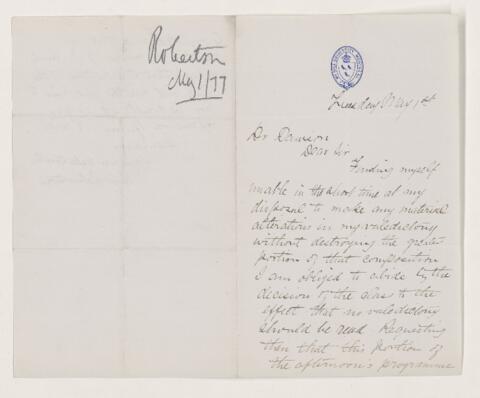 Robertson
May 1/77
Tuesday May 1st
Dr Dawson
Dear Sir
Finding myself
unable in the short time at my
disposal to make any material
alterations in my valedictory
without destroying the greater
portion of that composition
I am obliged to abide by the
decision of the class to the
effect that no valedictory
should be read Requesting
then that this portion of
the afternoon's programme